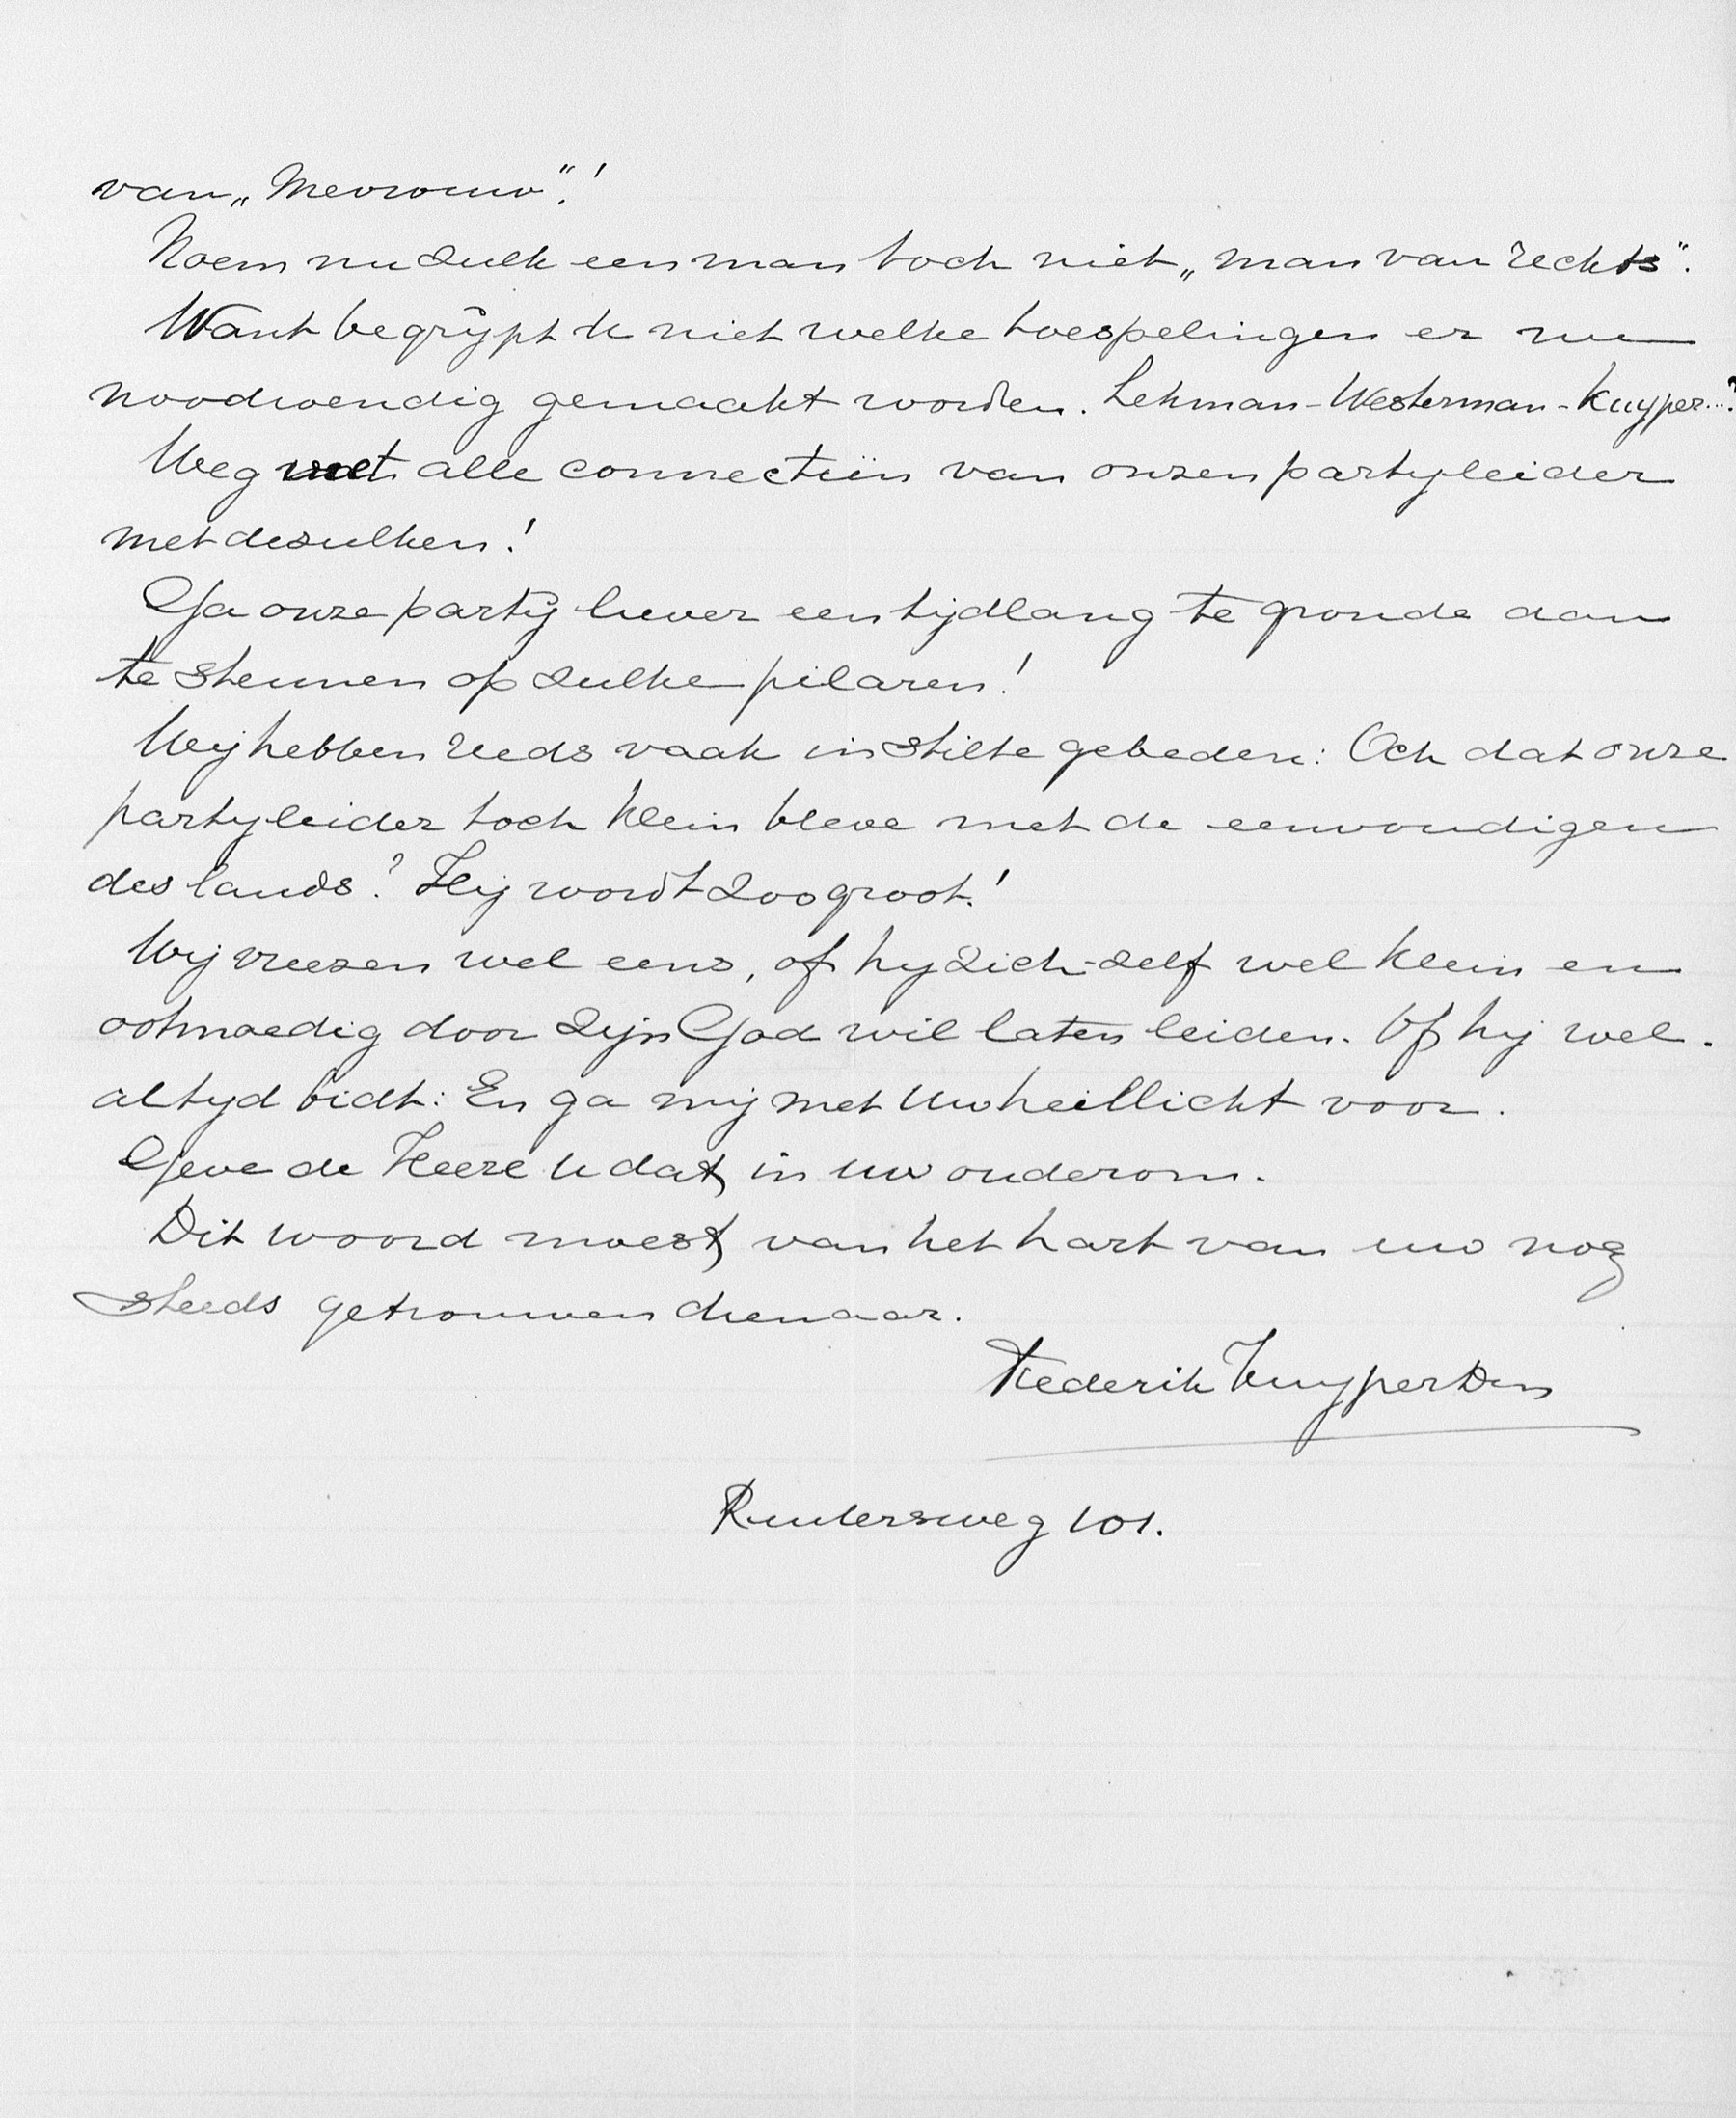 van „Mevrouw”!
Noem nu zulk een man toch niet „man van rechts”.
Want begrijpt U niet welke toespelingen er nu
noodwendig gemaakt worden. Lehman-Westerman-Kuyper...?
Weg met alle connectiën van onzen partyleider
met dezulken!
Ga onze partij liever een tijdlang te gronde dan
te steunen op zulke pilaren!
Wij hebben reeds vaak in stilte gebeden: Och dat onze
partyleider toch klein bleve met de eenvoudigen
des lands? Hij wordt zoo groot!
Wij vreezen wel eens, of hy zich-zelf wel klein en
ootmoedig door zijn God wil laten leiden. Of hij wel
altyd bidt: En ga mij met Uw heillicht voor.
Geve de Heere U dat, in uw ouderdom.
Dit woord moest, van het hart van uw nog
steeds getrouwen dienaar.
Frederik Kuyper Dzn
101.